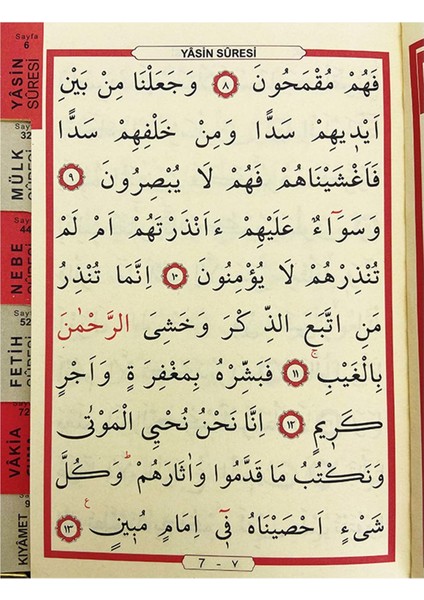 YÂSİN SÛRESİ
فَهُمْ مُقْمَحُونَ ٨ وَجَعَلْنَا مِنْ بَيْنِ
اَيْدٖيهِمْ سَدًّا وَمِنْ خَلْفِهِمْ سَدًّا
فَاَغْشَيْنَاهُمْ فَهُمْ لَا يُبْصِرُونَ ٩
وَسَوَٓاءٌ عَلَيْهِمْ ءَاَنْذَرْتَهُمْ اَمْ لَمْ
تُنْذِرْهُمْ لَا يُؤْمِنُونَ ١٠ اِنَّمَا تُنْذِرُ
مَنِ اتَّبَعَ الذِّكْرَ وَخَشِىَ الرَّحْمٰنَ
بِالْغَيْبِۚ فَبَشِّرْهُ بِمَغْفِرَةٍ وَاَجْرٍ ١١
كَرٖيمٍ ١٢ اِنَّا نَحْنُ نُحْيِي الْمَوْتٰى
وَنَكْتُبُ مَا قَدَّمُوا وَاٰثَارَهُمْؕ وَكُلَّ
شَىْءٍ اَحْصَيْنَاهُ فٖٓى اِمَامٍ مُبٖينٍ ع ١٣
7 - ٧
Sayfa
6
YÂSİN
SÛRESİ
32
MÜLK
SÛRESİ
44
NEBE
SÛRESİ
52
FETİH
SÛRESİ
72
VÂKIA
9
KIYÂMET